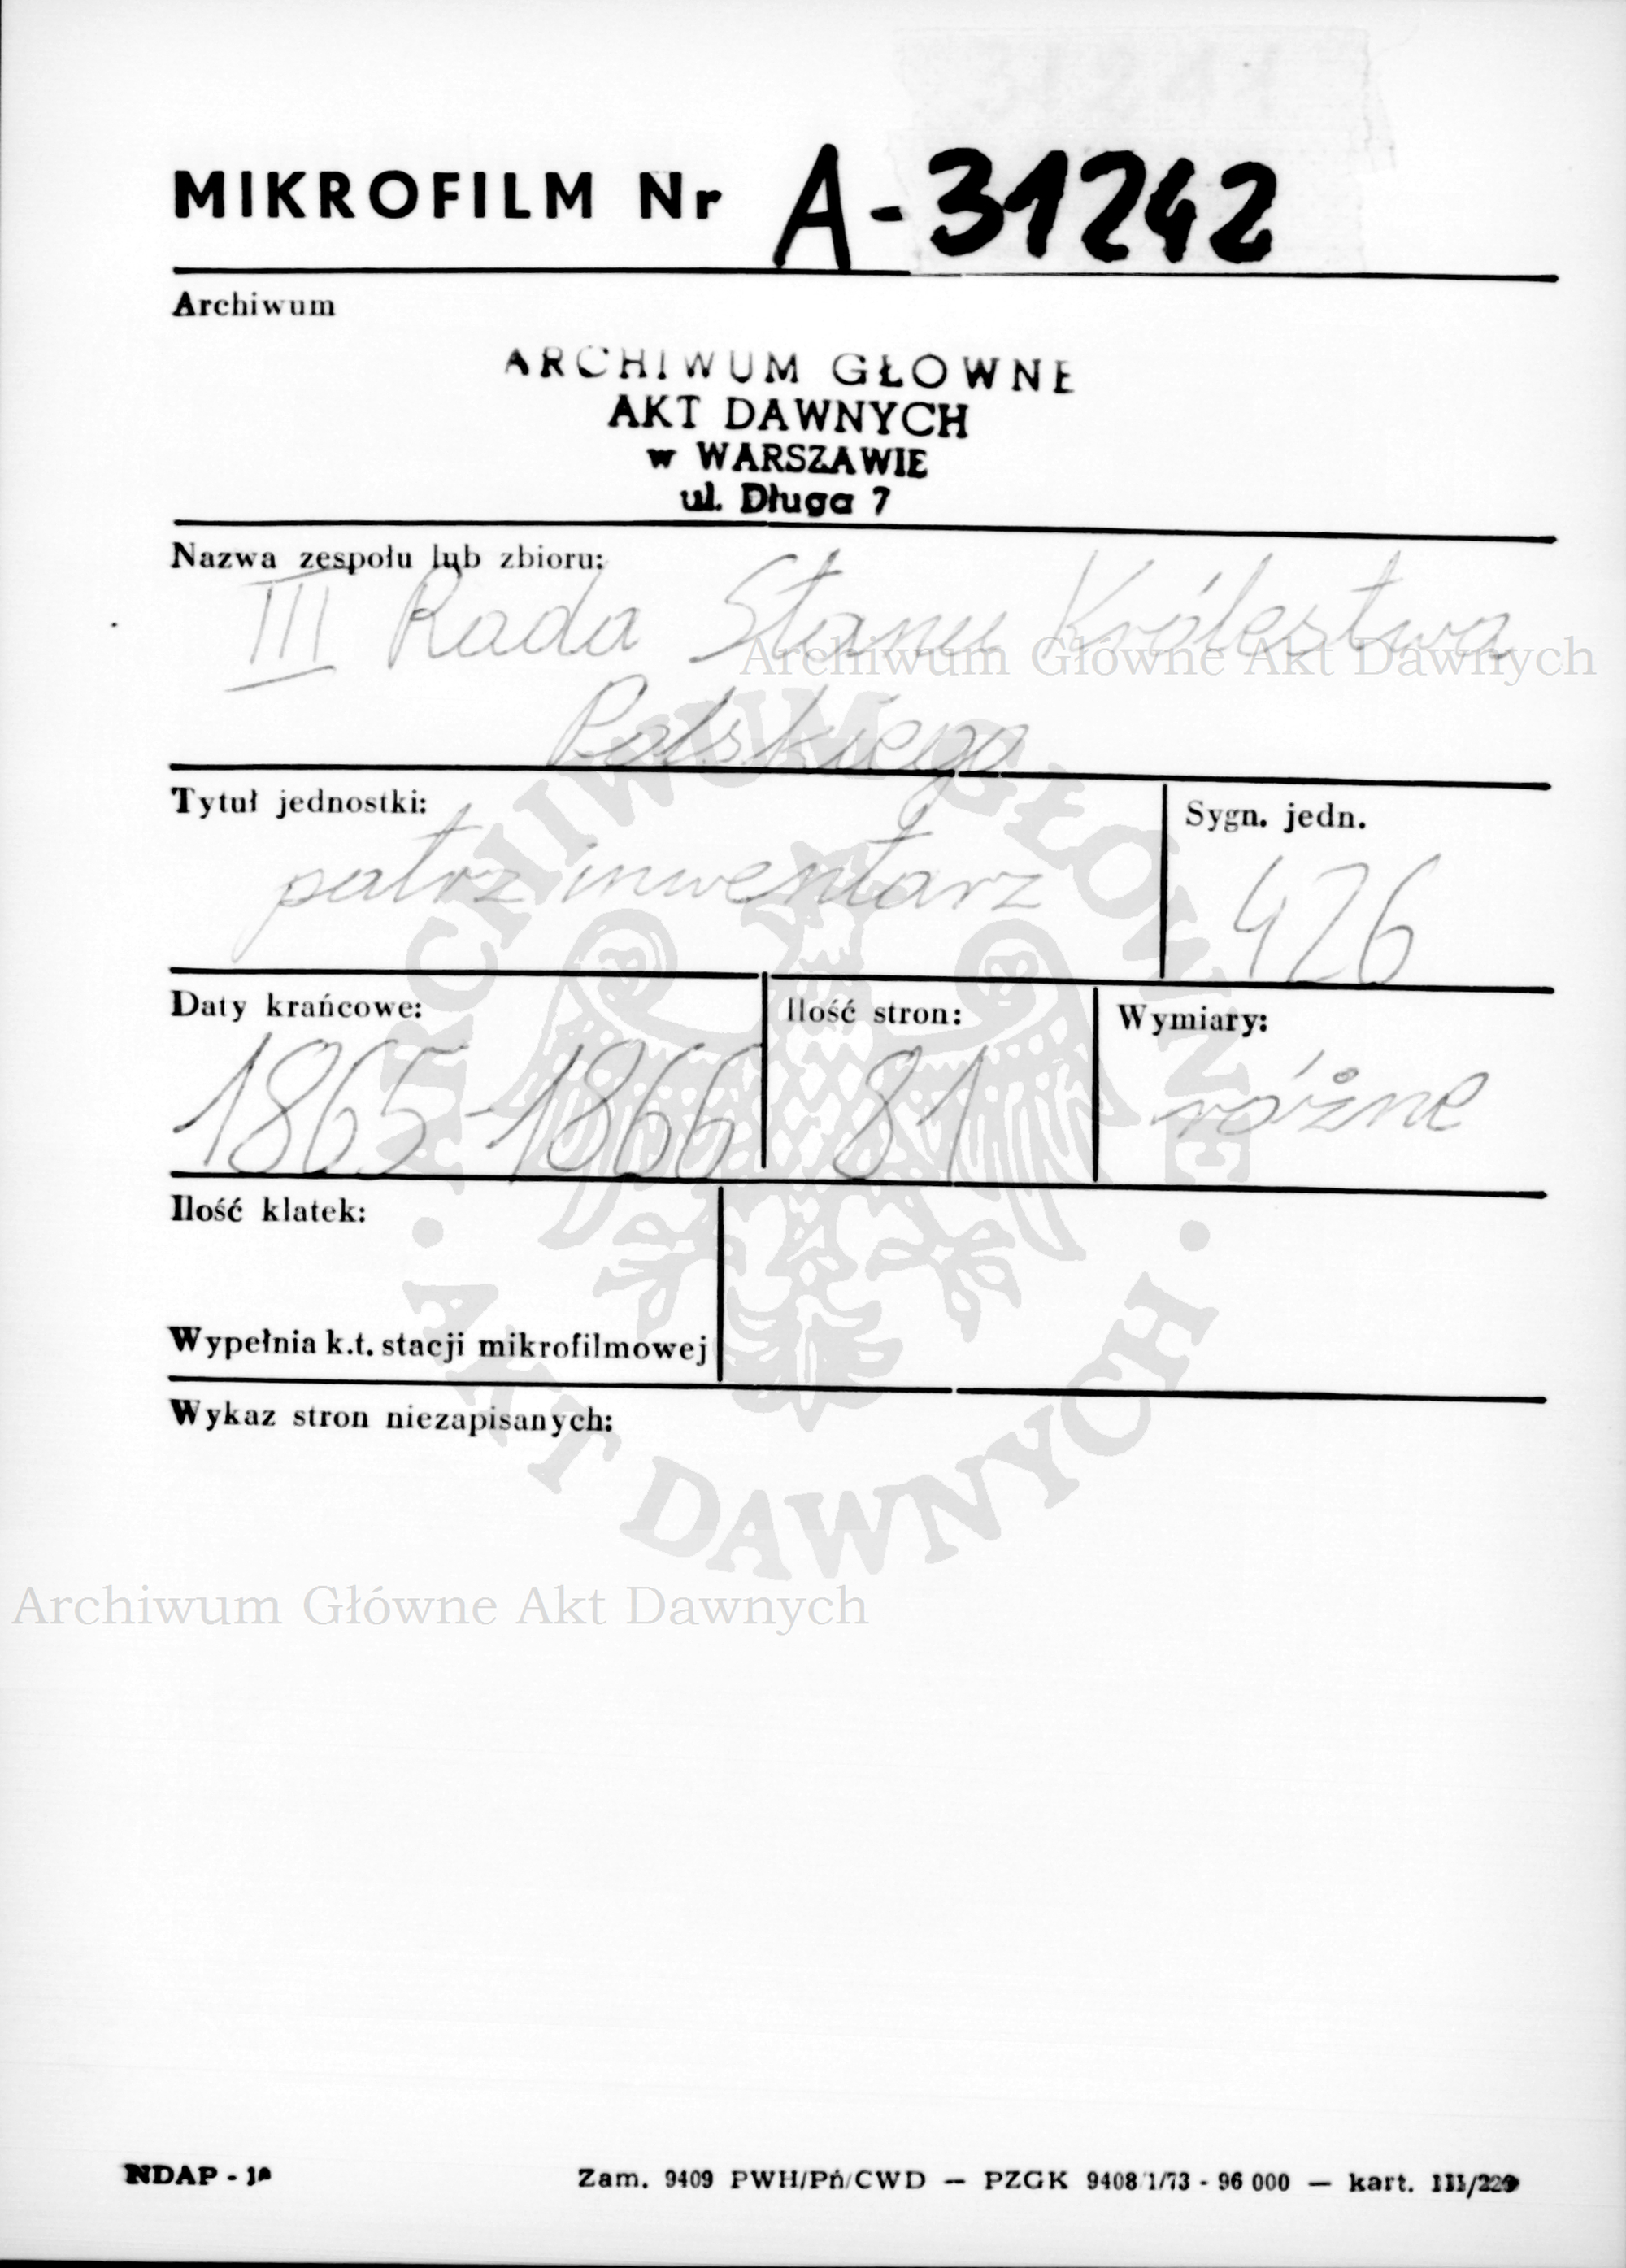 MIKROFILM Nr A-31242
Archiwum
ARCHIWUM GŁOWNE
AKT DAWNYCH
w WARSZAWIE
ul. Długa 7
Nazwa zespołu lub zbioru:
III Rada Stanu Królestwa
Archiwum Główne Akt Dawnych
Polskiego
Tytuł jednostki:
Sygn. jedn.
patrz inwentarz
426
Daty krańcowe:
Ilość stron:
Wymiary:
1865-1866
81
różne
Ilość klatek:
Wypełnia k.t. stacji mikrofilmowej
Wykaz stron niezapisanych:
ARCHIWUM GŁÓWNE
AKT DAWNYCH
Archiwum Główne Akt Dawnych
NDAP -
Zam. 9409 PWH/Pń/CWD — PZGK 9408/1/73 - 96 000 — kart.